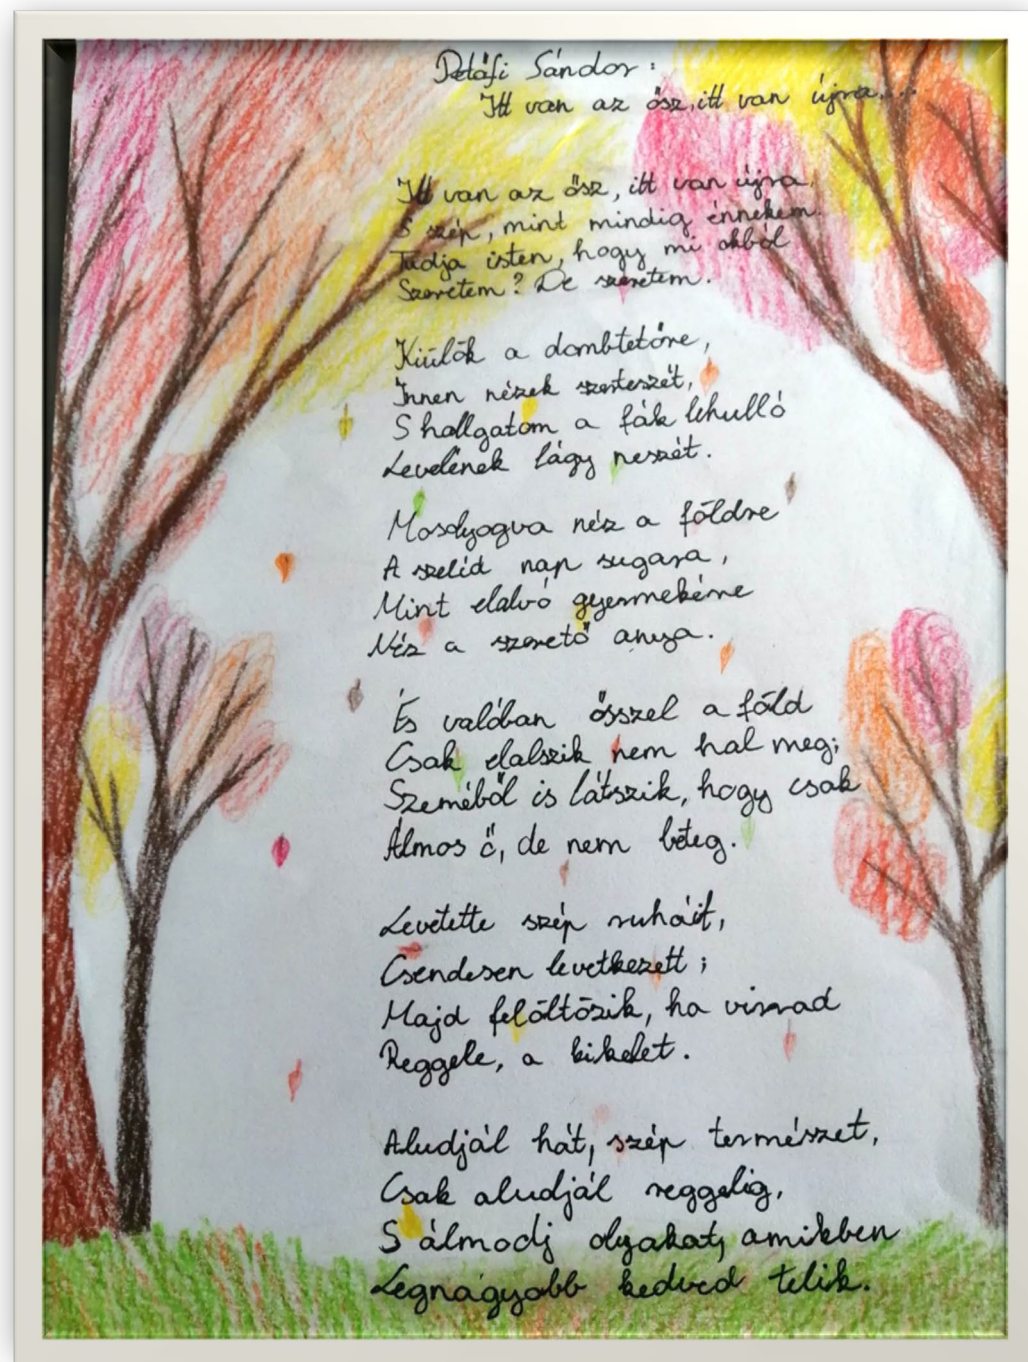 Petőfi Sándor:
Itt van az ősz, itt van újra...
Itt van az ősz, itt van újra,
S szép, mint mindig énnekem.
Tudja isten, hogy mi okból
Szeretem? De szeretem.
Kiülök a dombtetőre,
Innen nézek szerteszét,
S hallgatom a fák lehulló
Levelének lágy neszét.
Mosolyogva néz a földre
A szelíd nap sugara,
Mint elalvó gyermekére
Néz a szerető anya.
És valóban ősszel a föld
Csak elalszik nem hal meg;
Szeméből is látszik, hogy csak
Álmos ő, de nem beteg.
Levetette szép ruháit,
Csendesen levetkezett;
Majd felöltözik, ha virrad
Reggele, a kikelet.
Aludjál hát, szép természet,
Csak aludjál reggelig,
S álmodj olyakat, amikben
Legnagyobb kedved telik.